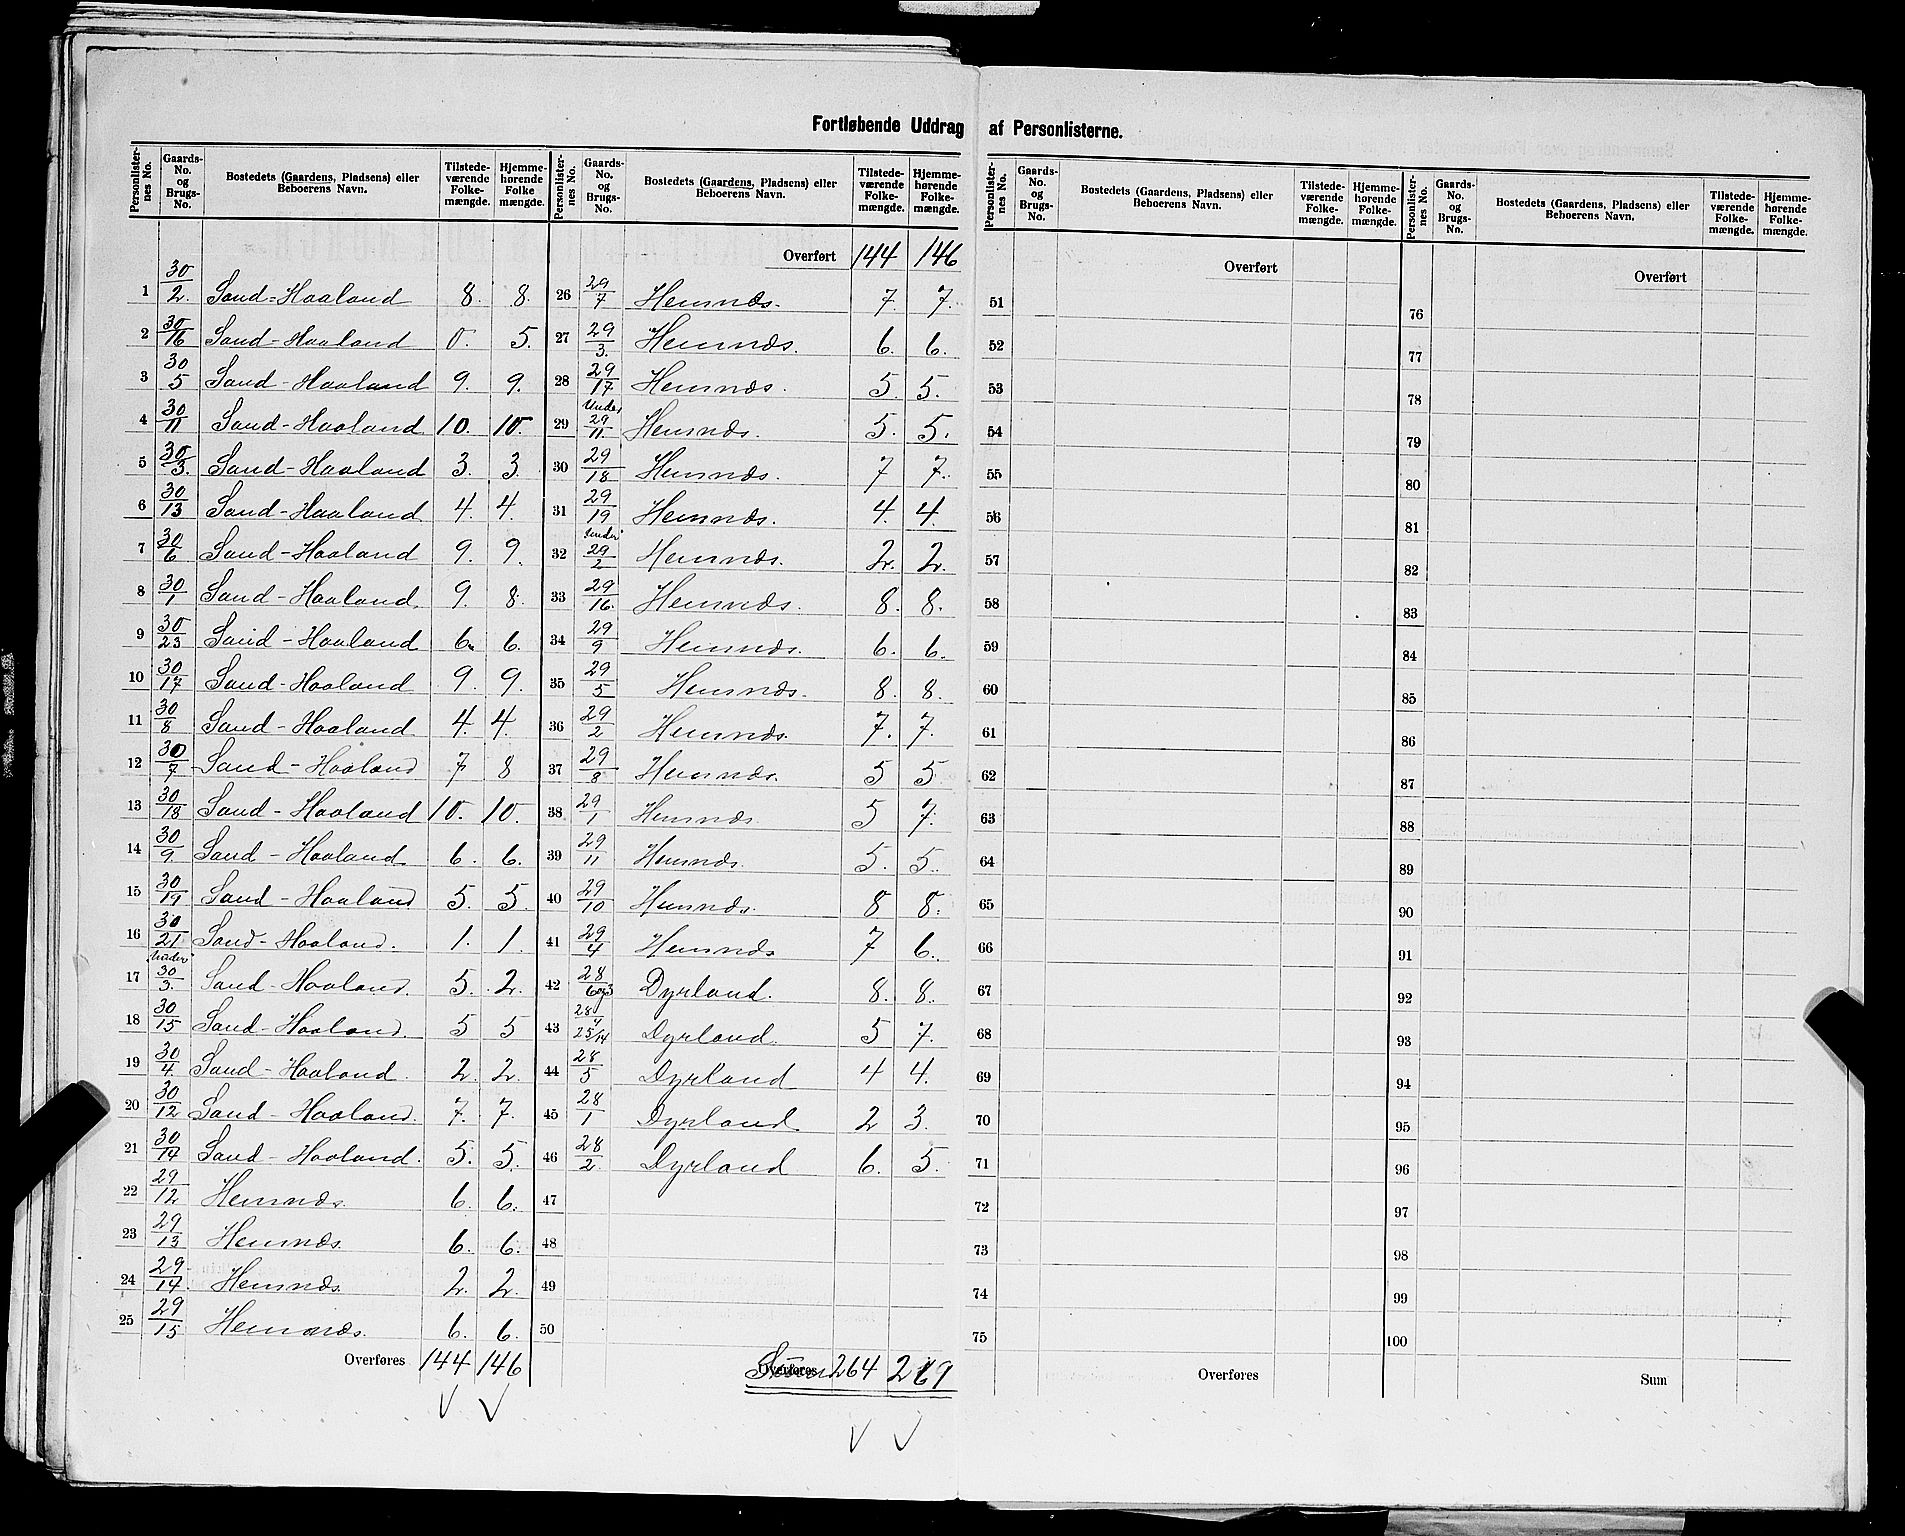 Fortløbende Uddrag af Personlisterne.
Personlister-nes No. | Gaards-No. og Brugs-No. | Bostedets (Gaardens, Pladsens) eller Beboerens Navn. | Tilstede-værende Folke-mængde. | Hjemme-hørende Folke mængde.
1 30/2. Sand-Haaland 8. 8.
2 30/16 Sand-Haaland 0. 5.
3 30/5 Sand-Haaland 9. 9.
4 30/11 Sand-Haaland 10. 10.
5 30/3. Sand-Haaland 3. 3
6 30/13 Sand-Haaland 4. 4.
7 30/6 Sand-Haaland 9. 9.
8 30/1 Sand-Haaland. 9. 8.
9 30/23 Sand-Haaland 6. 6.
10 30/17 Sand-Haaland 9. 9.
11 30/8 Sand-Haaland 4. 4.
12 30/7 Sand-Haaland 7 8
13 30/18 Sand-Haaland 10. 10.
14 30/9 Sand-Haaland 6. 6.
15 30/19 Sand-Haaland 5. 5.
16 30/21 Sand-Haaland. 1. 1.
17 Under 30/3. Sand-Haaland. 5. 2.
18 30/15 Sand-Haaland. 5 5
19 30/4. Sand-Haaland. 2. 2.
20 30/12 Sand-Haaland. 7. 7.
21 30/14 Sand-Haaland. 5. 5.
22 29/12 Hemnæs. 6. 6.
23 29/13 Hemnæs. 6. 6.
24 29/14. Hemnæs. 2. 2.
25 29/15 Hemnæs. 6. 6.
Overføres 144 146
Personlister-nes No. | Gaards-No. og Brugs-No. | Bostedets (Gaardens, Pladsens) eller Beboerens Navn. | Tilstede-værende Folke-mængde. | Hjemme-hørende Folke-mængde.
Overført 144 146
26 29/7 Hemnæs. 7. 7.
27 29/3. Hemnæs. 6. 6.
28 29/17 Hemnæs. 5. 5.
29 Under 29/11. Hemnæs. 5. 5.
30 29/18 Hemnæs. 7 7.
31 29/19 Hemnæs. 4. 4.
32 Under 29/2 Hemnæs. 2. 2.
33 29/16. Hemnæs. 8. 8.
34 29/9 Hemnæs. 6. 6.
35 29/5 Hemnæs. 8. 8.
36 29/2 Hemnæs. 7. 7.
37 29/8 Hemnæs. 5 5
38 29/1 Hemnæs. 5 7.
39 29/11 Hemnæs. 5. 5.
40 29/10 Hemnæs. 8 8.
41 29/4 Hemnæs 7 6.
42 28/6og3 Dyrland. 8. 8.
43 28/4 25/14 Dyrland. 5 7.
44 28/5 Dyrland 4 4.
45 28/1 Dyrland. 2 3.
46 28/2 Dyrland 6. 5.
47
48
49
50
Overføres 264 269
Personlister-nes No. | Gaards-No. og Brugs-No. | Bostedets (Gaardens, Pladsens) eller Beboerens Navn. | Tilstede-værende Folke-mængde. | Hjemme-hørende Folke-mængde.
Overført
51
52
53
54
55
56
57
58
59
60
61
62
63
64
65
66
67
68
69
70
71
72
73
74
75
Overføres
Personlister-nes No. | Gaards-No. og Brugs-No. | Bostedets (Gaardens, Pladsens) eller Beboerens Navn. | Tilstede-værende Folke-mængde. | Hjemme-hørende Folke-mængde.
Overført
76
77
78
79
80
81
82
83
84
85
86
87
88
89
90
91
92
93
94
95
96
97
98
99
100
Sum